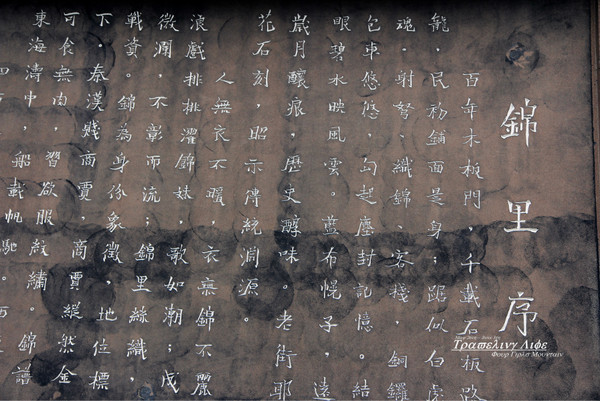 錦里序
百年木板門，千載石板路
龍，民初鋪面是身；踞似白虎
魂。射弩、織錦、客棧，銅鑼
包車悠悠，勾起塵封記憶。結
眼碧水映風雲。藍布幌子，遠
歲月釀痕，歷史醇味。老街耶
花石刻，昭示傳統淵源。
人無衣不暖，衣無錦不麗
浪戲排排濯錦妹，歌如潮；成
微澜，不彰而流；錦里絲織，
戰資。錦為身份象徵，地位標
下。秦漢賤商賈，商賈縱然金
可食無肉，習欲服紋繡。錦譜
東海濤中，船載帆馳。西
Τραπελινγ Λιφε
Φουρ Γιρλσ Μουνταιν